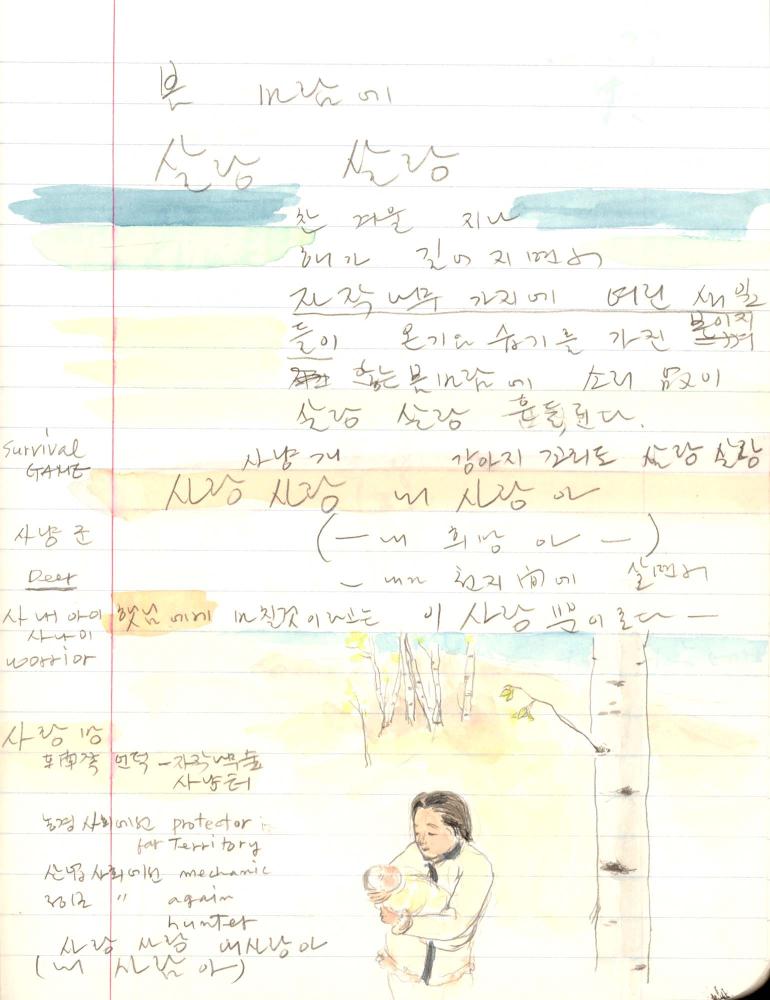 봄 바람에
살랑 살랑
찬 겨울 지나
해가 길어 지면서
자작나무 가지에 여린 새 잎
들이 온기와 습기를 가진 불어지
봄바람에 소리 없이
살랑 살랑 흔들린다.
사냥개 강아지 꼬리도 살랑 살랑
사랑 사랑 내 사랑아
(— 내 희망아 —)
천지間에 살면서
햇님에게 바칠것이라고는 이 사랑 뿐이로다 —
Survival
GAME
사냥군
Deer
사내아이
사나이
worrior
사랑방
언덕 - 자작나무숲
사냥터
농경사회에선 protector
for Territory
산업사회에선 mechanic
정보 " again
hunter
사랑 사랑 내사랑아
(내 사람아)